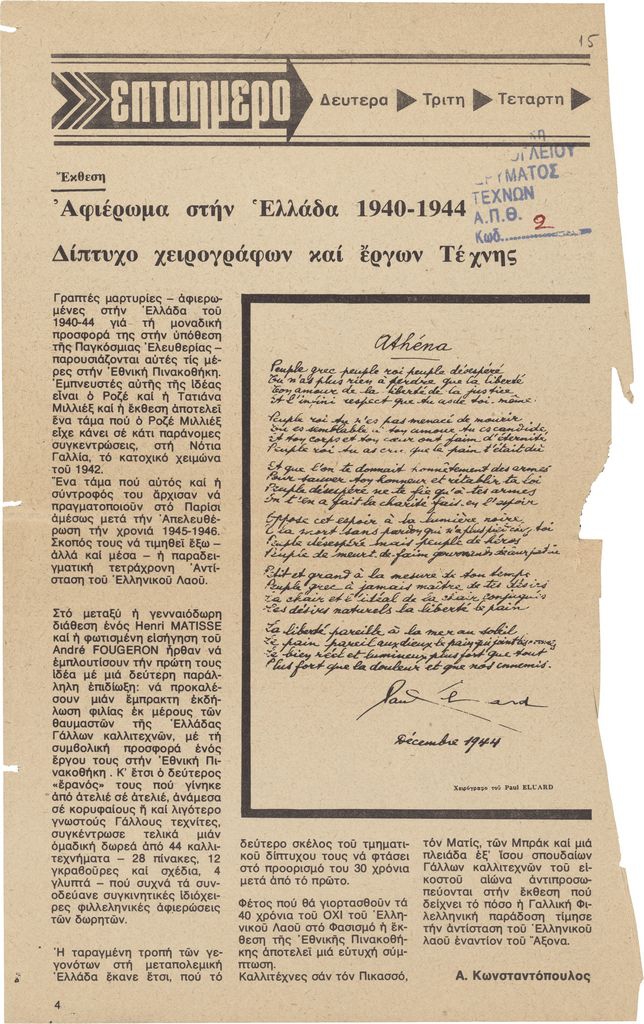 15
επταημερο
Δευτερα Τριτη Τεταρτη
ΜΑΤΟΣ
ΤΕΧΝΩΝ
Α.Π.Θ. 2
Κωδ.
Ἔκθεση
Ἀφιέρωμα στήν Ἑλλάδα 1940-1944
Δίπτυχο χειρογράφων καί ἔργων Τέχνης
Γραπτές μαρτυρίες – ἀφιερω-
μένες στήν Ἑλλάδα τοῦ
1940-44 γιά τή μοναδική
προσφορά της στήν ὑπόθεση
τῆς Παγκόσμιας Ἐλευθερίας –
παρουσιάζονται αὐτές τίς μέ-
ρες στήν Ἐθνική Πινακοθήκη.
Ἐμπνευστές αὐτῆς τῆς ἰδέας
εἶναι ὁ Ροζέ καί ἡ Τατιάνα
Μιλλιέξ καί ἡ ἔκθεση ἀποτελεῖ
ἕνα τάμα πού ὁ Ροζέ Μιλλιέξ
εἶχε κάνει σέ κάτι παράνομες
συγκεντρώσεις, στή Νότια
Γαλλία, τό κατοχικό χειμώνα
τοῦ 1942.
Ἕνα τάμα πού αὐτός καί ἡ
σύντροφός του ἄρχισαν νά
πραγματοποιοῦν στό Παρίσι
ἀμέσως μετά τήν Ἀπελευθέ-
ρωση τήν χρονιά 1945-1946.
Σκοπός τους νά τιμηθεῖ ἔξω –
ἀλλά καί μέσα – ἡ παραδει-
γματική τετράχρονη Ἀντί-
σταση τοῦ Ἑλληνικοῦ Λαοῦ.
Στό μεταξύ ἡ γενναιόδωρη
διάθεση ἑνός Henri MATISSE
καί ἡ φωτισμένη εἰσήγηση τοῦ
André FOUGERON ἦρθαν νά
ἐμπλουτίσουν τήν πρώτη τους
ἰδέα μέ μιά δεύτερη παράλ-
ληλη ἐπιδίωξη: νά προκαλέ-
σουν μιάν ἔμπρακτη ἐκδή-
λωση φιλίας ἐκ μέρους τῶν
θαυμαστῶν τῆς Ἑλλάδας
Γάλλων καλλιτεχνῶν, μέ τή
συμβολική προσφορά ἑνός
ἔργου τους στήν Ἐθνική Πι-
νακοθήκη. Κ' ἔτσι ὁ δεύτερος
«ἔρανός» τους πού γίνηκε
ἀπό ἀτελιέ σέ ἀτελιέ, ἀνάμεσα
σέ κορυφαίους ἤ καί λιγότερο
γνωστούς Γάλλους τεχνίτες,
συγκέντρωσε τελικά μιάν
ὁμαδική δωρεά ἀπό 44 καλλι-
τεχνήματα – 28 πίνακες, 12
γκραβοῦρες καί σχέδια, 4
γλυπτά – πού συχνά τά συν-
οδεύανε συγκινητικές ἰδιόχει-
ρες φιλλεληνικές ἀφιερώσεις
τῶν δωρητῶν.
Ἡ ταραγμένη τροπή τῶν γε-
γονότων στή μεταπολεμική
Ἑλλάδα ἔκανε ἔτσι, πού τό
Athéna
Peuple grec peuple roi peuple désespéré
Tu n'as plus rien à perdre que la liberté
Ton amour de la liberté de la justice
Et l'infini respect que tu as de toi-même
Peuple roi tu n'es pas menacé de mourir
Tu es semblable à ton amour tu es candide
Et ton corps et ton cœur ont faim d'éternité
Peuple roi tu as cru que le pain t'était dû
Et que l'on te donnait honnêtement des armes
Pour sauver ton honneur et rétablir ta loi
Peuple désespéré ne te fie qu'à tes armes
On t'en a fait la charité fais-en l'espoir
Oppose cet espoir à la lumière noire
A la mort sans pardon qui n'a plus pied chez toi
Peuple désespéré mais peuple de héros
Peuple de meurt-de-faim gourmands de leur patrie
Petit et grand à la mesure de ton temps
Peuple grec à jamais maître de tes désirs
La chair et l'idéal de la chair conjugués
Les désirs naturels la liberté le pain
La liberté pareille à la mer au soleil
Le pain pareil aux dieux le pain qui joint les hommes
Le bien réel et lumineux plus fort que tout
Plus fort que la douleur et que nos ennemis.
Paul Éluard
Décembre 1944
Χειρόγραφο τοῦ Paul ELUARD
δεύτερο σκέλος τοῦ τμηματι-
κοῦ δίπτυχου τους νά φτάσει
στό προορισμό του 30 χρόνια
μετά ἀπό τό πρῶτο.
Φέτος πού θά γιορτασθοῦν τά
40 χρόνια τοῦ ΟΧΙ τοῦ Ἑλλη-
νικοῦ Λαοῦ στό Φασισμό ἡ ἔκ-
θεση τῆς Ἐθνικῆς Πινακοθή-
κης ἀποτελεῖ μιά εὐτυχή σύμ-
πτωση.
Καλλιτέχνες σάν τόν Πικασσό,
τόν Ματίς, τῶν Μπράκ καί μιά
πλειάδα ἐξ' ἴσου σπουδαίων
Γάλλων καλλιτεχνῶν τοῦ εἰ-
κοστοῦ αἰώνα ἀντιπροσω-
πεύονται στήν ἔκθεση πού
δείχνει τό πόσο ἡ Γαλλική Φι-
λελληνική παράδοση τίμησε
τήν ἀντίσταση τοῦ Ἑλληνικοῦ
λαοῦ ἐναντίον τοῦ Ἄξονα.
Α. Κωνσταντόπουλος
4